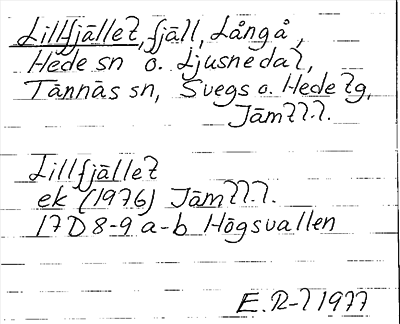 Lillfjället, fjäll, Långå,
Hede sn o. Ljusnedal,
Tännäs sn, Svegs o. Hede tg,
Jämtl.l.
Lillfjället
ek (1976) Jämtl.l.
17D 8-9 a-b Högsvallen
E.R-l 1977